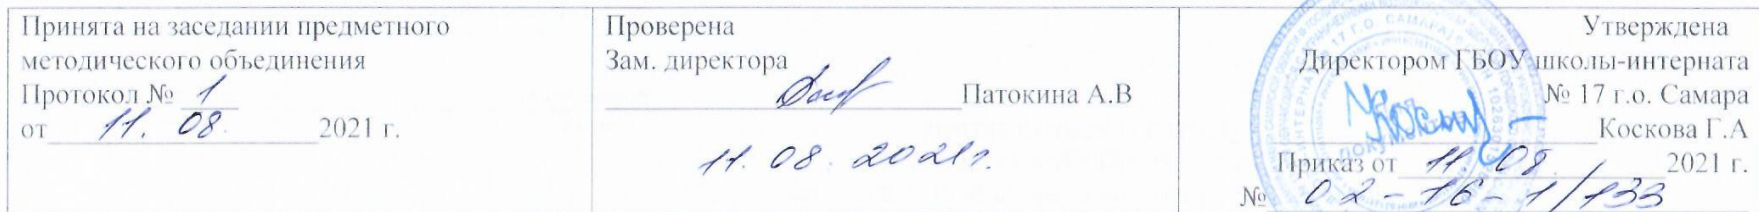 Принята на заседании предметного
методического объединения
Протокол № 1
от 11. 08. 2021 г.
Проверена
Зам. директора
Патокина А.В
11. 08. 2021г.
Утверждена
Директором ГБОУ школы-интерната
№ 17 г.о. Самара
Коскова Г.А
Приказ от 11. 08. 2021 г.
№ 02-16-1/133